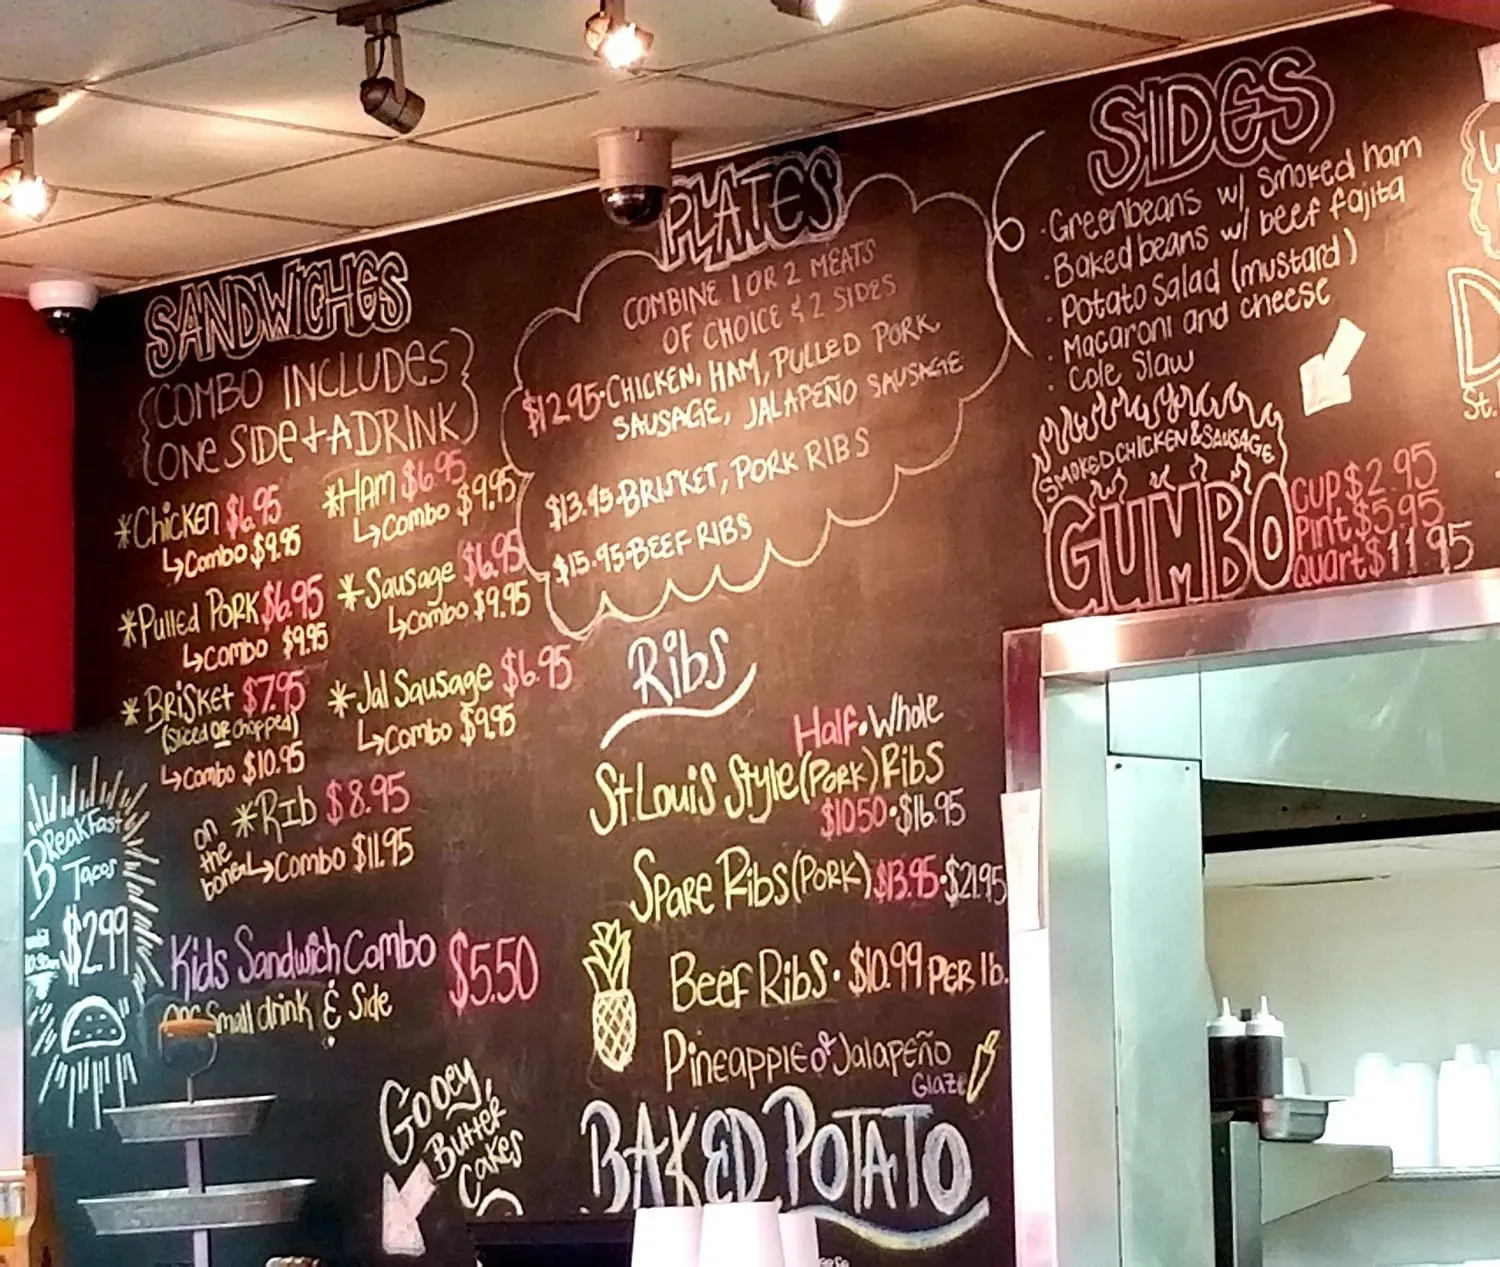 SANDWICHES
COMBO INCLUDES
ONE SIDE + A DRINK
*Chicken $6.95
↳Combo $9.95
*HAM $6.95
↳Combo $9.95
*Pulled PORK $6.95
↳Combo $9.95
*Sausage $6.95
↳Combo $9.95
*BRISKET $7.95
(Sliced OR chopped)
↳Combo $10.95
*Jal Sausage $6.95
↳Combo $9.95
on
the
bone
*RIB $8.95
↳Combo $11.95
Kids Sandwich Combo $5.50
Small drink & Side
BREAKFAST
TACOS
$2.99
until
Gooey
Butter
Cakes
PLATES
COMBINE 1 OR 2 MEATS
OF CHOICE & 2 SIDES
$12.95·CHICKEN, HAM, PULLED PORK
SAUSAGE, JALAPEÑO SAUSAGE
$13.95·BRISKET, PORK RIBS
$15.95·BEEF RIBS
RIBS
Half·Whole
St. Louis Style (PORK) Ribs
$10.50·$16.95
SPARE RIBS (PORK) $13.95·$21.95
BEEF RIBS·$10.99 PER lb.
PINEAPPLE or JALAPEÑO
GLAZE
BAKED POTATO
SIDES
·Greenbeans w/ smoked ham
·Baked beans w/ beef fajita
·Potato Salad (mustard)
·Macaroni and cheese
·Cole Slaw
SMOKED CHICKEN & SAUSAGE
GUMBO
CUP $2.95
Pint $5.95
Quart $11.95
D
St.